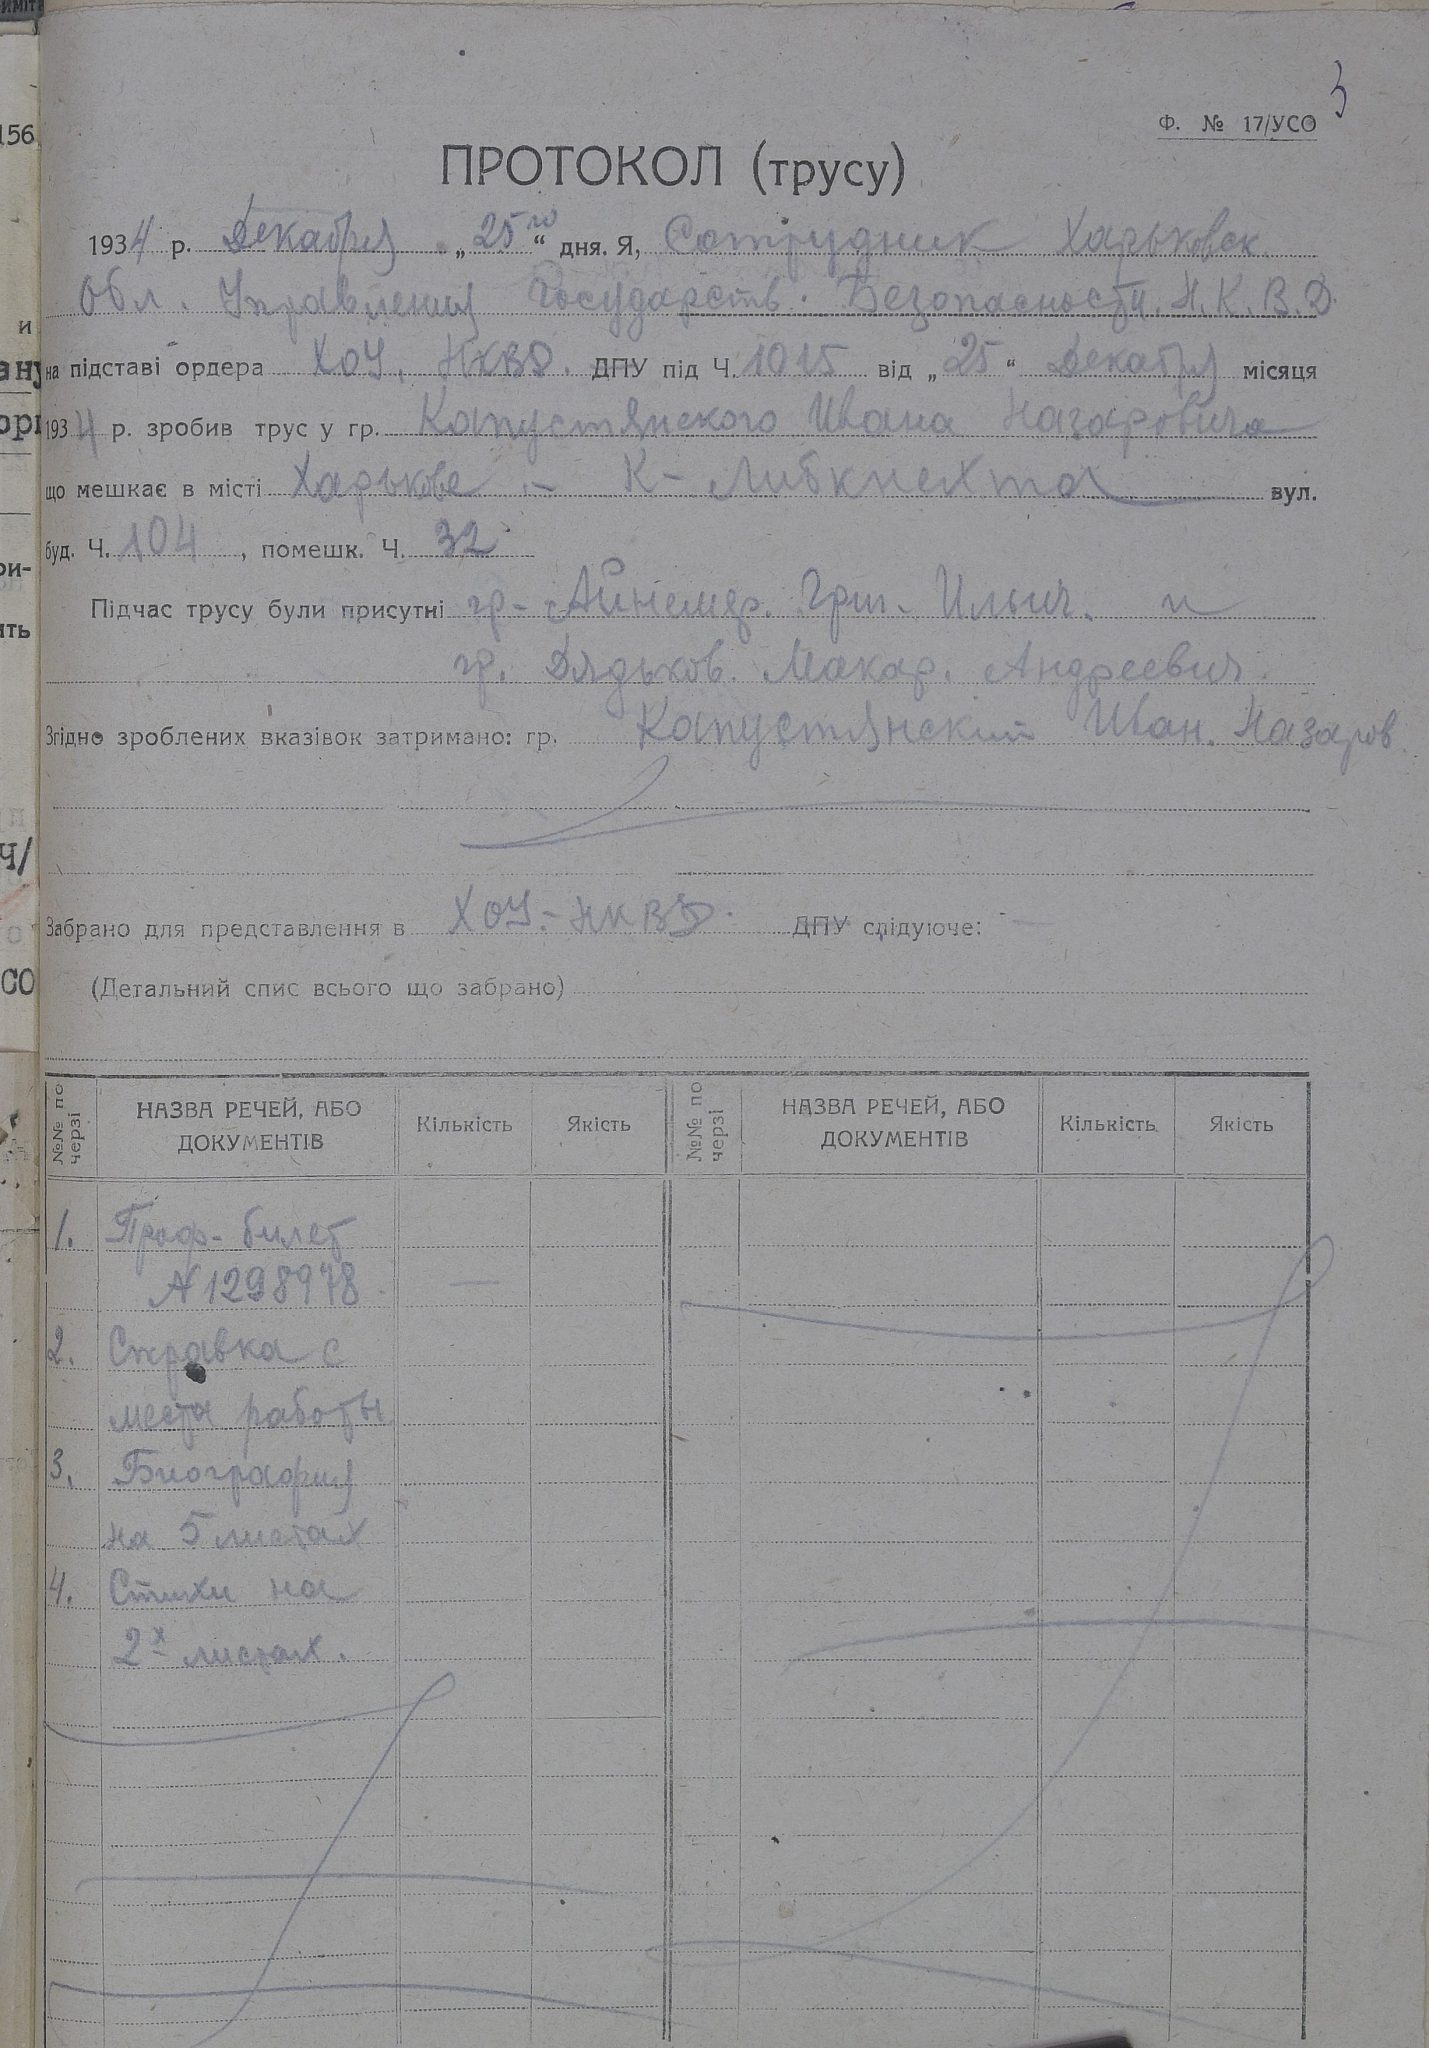 3
Ф. № 17/УСО
ПРОТОКОЛ (трусу)
1934 р. Декабря „25го“ дня. Я, Сотрудник Харьковск.
Обл. Управления Государств. Безопасности. Н.К.В.Д.
на підставі ордера ХОУ. НКВД. ДПУ під Ч. 1015 від „25“ Декабря місяця
1934 р. зробив трус у гр. Капустянского Ивана Назаровича
що мешкає в місті Харькове - К-Либкнехта вул.
буд. Ч. 104, помешк. Ч. 32
Підчас трусу були присутні гр- Григ. Ильич. и
гр. Дядьков. Макар. Андреевич.
Згідно зроблених вказівок затримано: гр. Капустянский Иван. Назаров.
Забрано для представлення в ХОУ-НКВД. ДПУ слідуюче: -
(Детальний спис всього що забрано)
№№ по черзі НАЗВА РЕЧЕЙ, АБО ДОКУМЕНТІВ Кількість Якість №№ по черзі НАЗВА РЕЧЕЙ, АБО ДОКУМЕНТІВ Кількість Якість
1. Проф-билет
№1298978 —
2. Справка с
места работы
3. Биография
на 5 листах
4. Стихи на
2х листах.